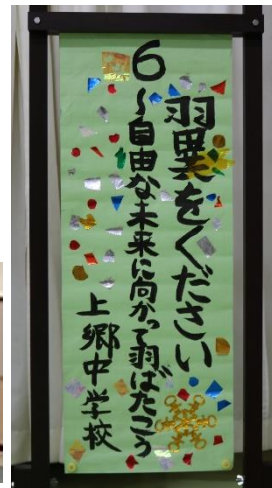 6
翼をください
～自由な未来に向かって羽ばたこう
上郷中学校